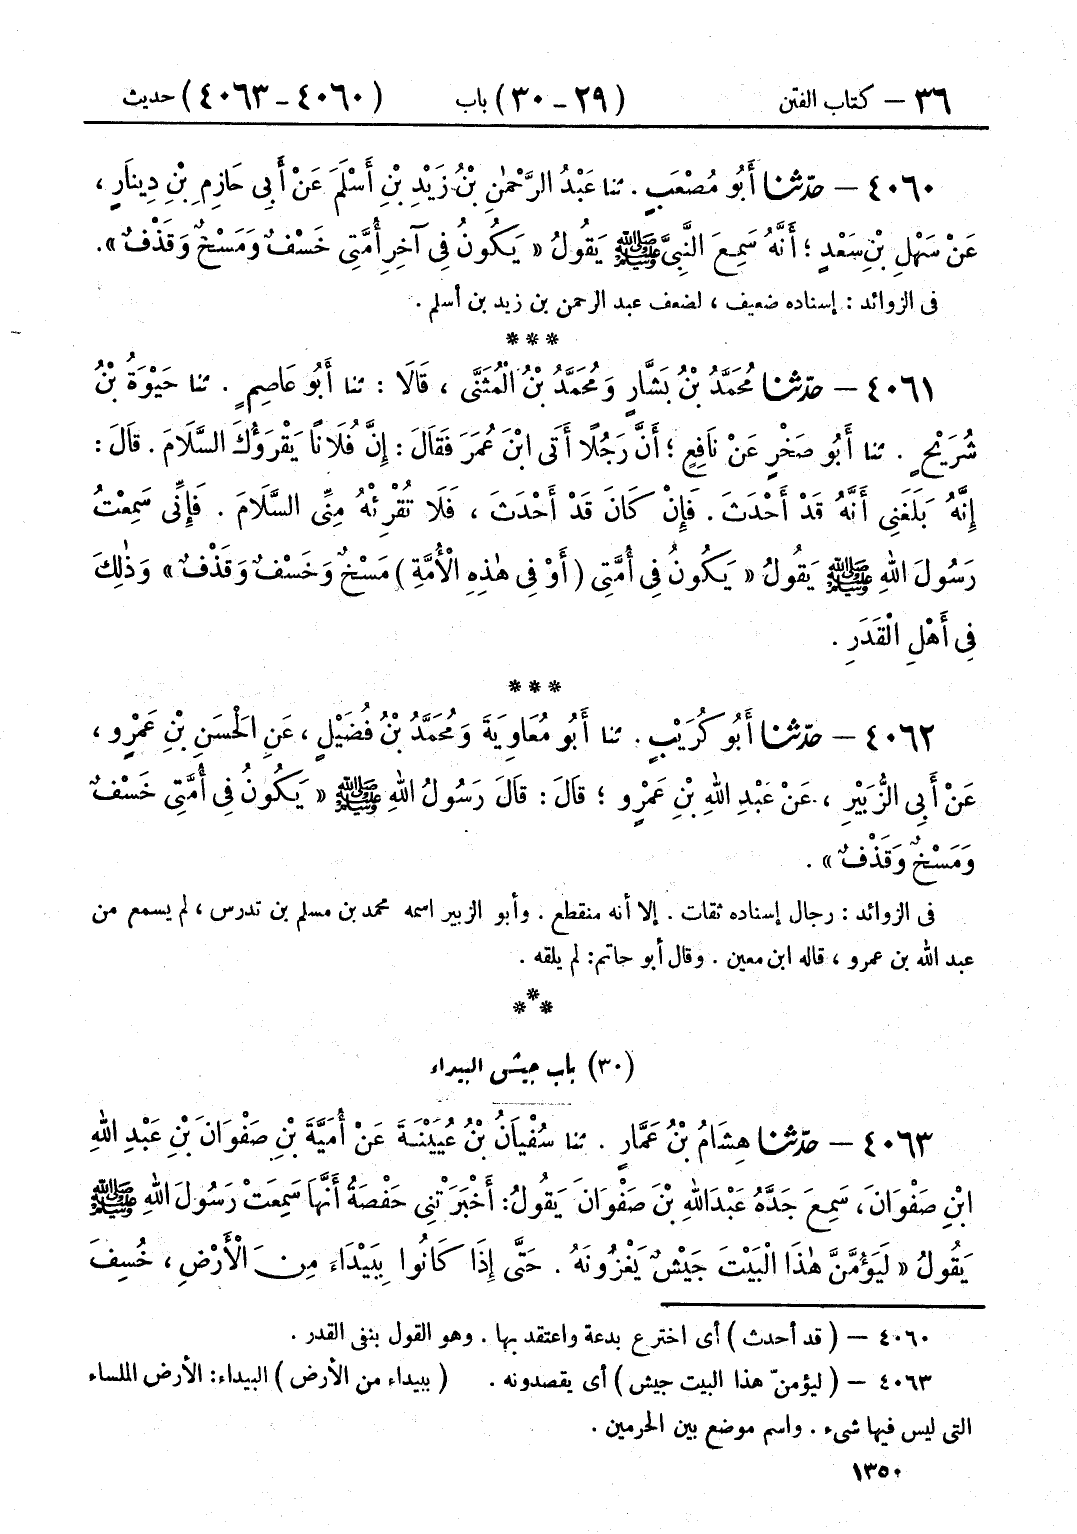 ٣٦ – كتاب الفتن (٢٩ - ٣٠) باب (٤٠٦٠ - ٤٠٦٣) حديث
٤٠٦٠ – حدّثنا أَبُو مُصْعَبٍ . ثنا عَبْدُ الرَّحْمٰنِ بْنُ زَيْدِ بْنِ أَسْلَمَ عَنْ أَبِى حَازِمِ بْنِ دِينَارٍ ،
عَنْ سَهْلِ بْنِ سَعْدٍ ؛ أَنَّهُ سَمِعَ النَّبِىَّ ﷺ يَقُولُ « يَكُونُ فِى آخِرِ أُمَّتِى خَسْفٌ وَمَسْخٌ وَقَذْفٌ ».
فى الزوائد : إسناده ضعيف ، لضعف عبد الرحمن بن زيد بن أسلم .
***
٤٠٦١ – حدّثنا مُحَمَّدُ بْنُ بَشَّارٍ وَمُحَمَّدُ بْنُ الْمُثَنَّى ، قَالَا : ثنا أَبُو عَاصِمٍ . ثنا حَيْوَةُ بْنُ
شُرَيْحٍ . ثنا أَبُو صَخْرٍ عَنْ نَافِعٍ ؛ أَنَّ رَجُلًا أَتَى ابْنَ عُمَرَ فَقَالَ : إِنَّ فُلَانًا يَقْرَؤُكَ السَّلَامَ . قَالَ :
إِنَّهُ بَلَغَنِى أَنَّهُ قَدْ أَحْدَثَ . فَإِنْ كَانَ قَدْ أَحْدَثَ ، فَلَا تُقْرِئْهُ مِنِّى السَّلَامَ . فَإِنِّى سَمِعْتُ
رَسُولَ اللهِ ﷺ يَقُولُ « يَكُونُ فِى أُمَّتِى ( أَوْ فِى هٰذِهِ الْأُمَّةِ ) مَسْخٌ وَخَسْفٌ وَقَذْفٌ » وَذٰلِكَ
فِى أَهْلِ الْقَدَرِ .
***
٤٠٦٢ – حدّثنا أَبُو كُرَيْبٍ . ثنا أَبُو مُعَاوِيَةَ وَمُحَمَّدُ بْنُ فُضَيْلٍ ، عَنِ الْحَسَنِ بْنِ عَمْرٍو ،
عَنْ أَبِى الزُّبَيْرِ ، عَنْ عَبْدِ اللهِ بْنِ عَمْرٍو ؛ قَالَ : قَالَ رَسُولُ اللهِ ﷺ « يَكُونُ فِى أُمَّتِى خَسْفٌ
وَمَسْخٌ وَقَذْفٌ » .
فى الزوائد : رجال إسناده ثقات . إلا أنه منقطع . وأبو الزبير اسمه محمد بن مسلم بن تدرس ، لم يسمع من
عبد الله بن عمرو ، قاله ابن معين . وقال أبو حاتم : لم يلقه .
***
(٣٠) باب جيش البيداء
٤٠٦٣ – حدّثنا هِشَامُ بْنُ عَمَّارٍ . ثنا سُفْيَانُ بْنُ عُيَيْنَةَ عَنْ أُمَيَّةَ بْنِ صَفْوَانَ بْنِ عَبْدِ اللهِ
ابْنِ صَفْوَانَ ، سَمِعَ جَدَّهُ عَبْدَ اللهِ بْنَ صَفْوَانَ يَقُولُ : أَخْبَرَتْنِى حَفْصَةُ أَنَّهَا سَمِعَتْ رَسُولَ اللهِ ﷺ
يَقُولُ « لَيَؤُمَّنَّ هٰذَا الْبَيْتَ جَيْشٌ يَغْزُونَهُ . حَتَّى إِذَا كَانُوا بِبَيْدَاءَ مِنَ الْأَرْضِ ، خُسِفَ
٤٠٦٠ – ( قد أحدث ) أى اخترع بدعة واعتقد بها . وهو القول بنفى القدر .
٤٠٦٣ – ( ليؤمنّ هذا البيت جيش ) أى يقصدونه . ( ببيداء من الأرض ) البيداء : الأرض الملساء
التى ليس فيها شىء . واسم موضع بين الحرمين .
١٣٥٠